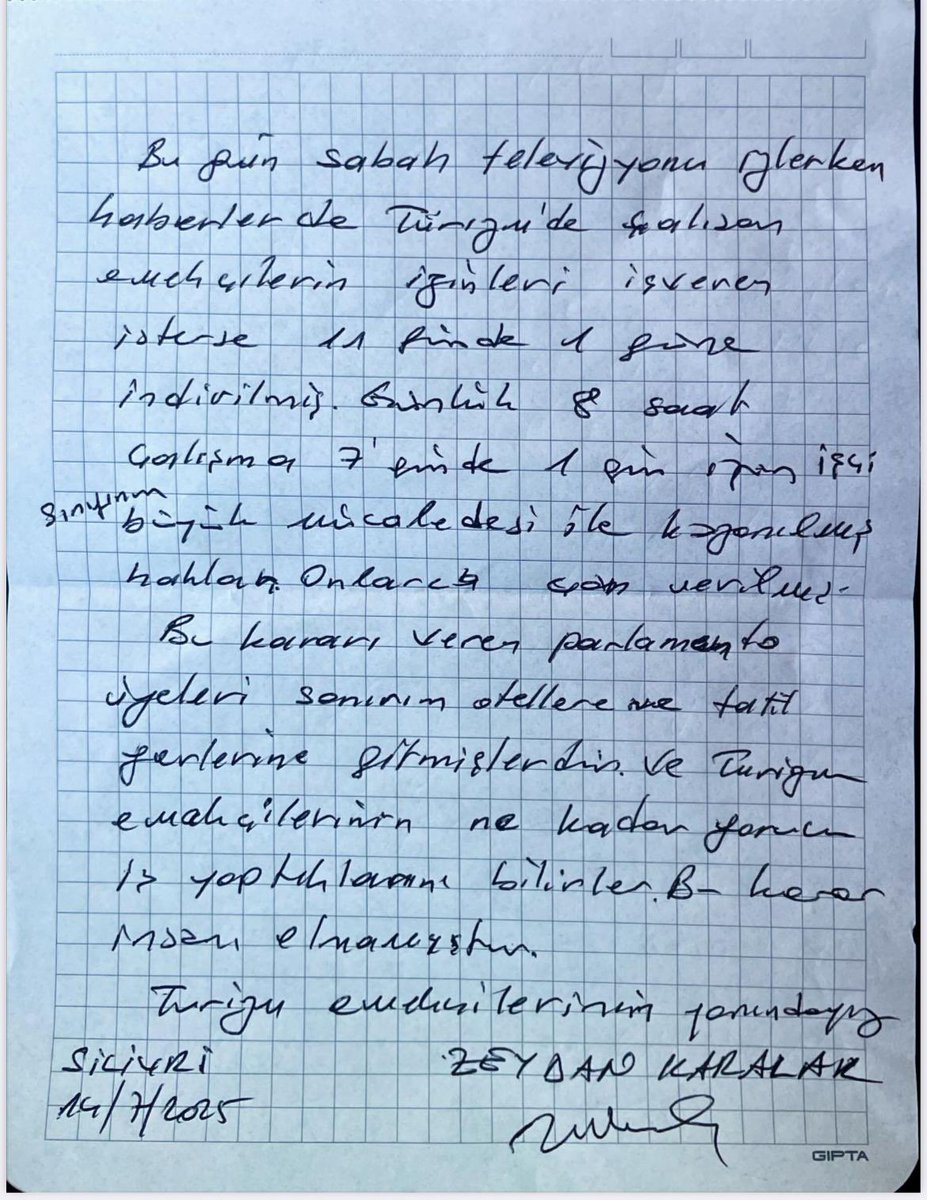 Bu gün sabah televizyonu izlerken
haberlerde Turizm'de çalışan
emekçilerin izinleri işveren
isterse 11 günde 1 güne
indirilmiş. Günlük 8 saat
çalışma 7 günde 1 gün izin işçi
sınıfının büyük mücadelesi ile kazanılmış
haklar. Onlarca can verilmiş.
Bu kararı veren parlamento
üyeleri sanırım otellere ve tatil
yerlerine gitmişlerdir. Ve Turizm
emekçilerinin ne kadar yorucu
iş yaptıklarını bilirler. Bu karar
insani olmamıştır.
Turizm emekçilerinin yanındayız
SİLİVRİ ZEYDAN KARALAR
14/7/2025
GIPTA